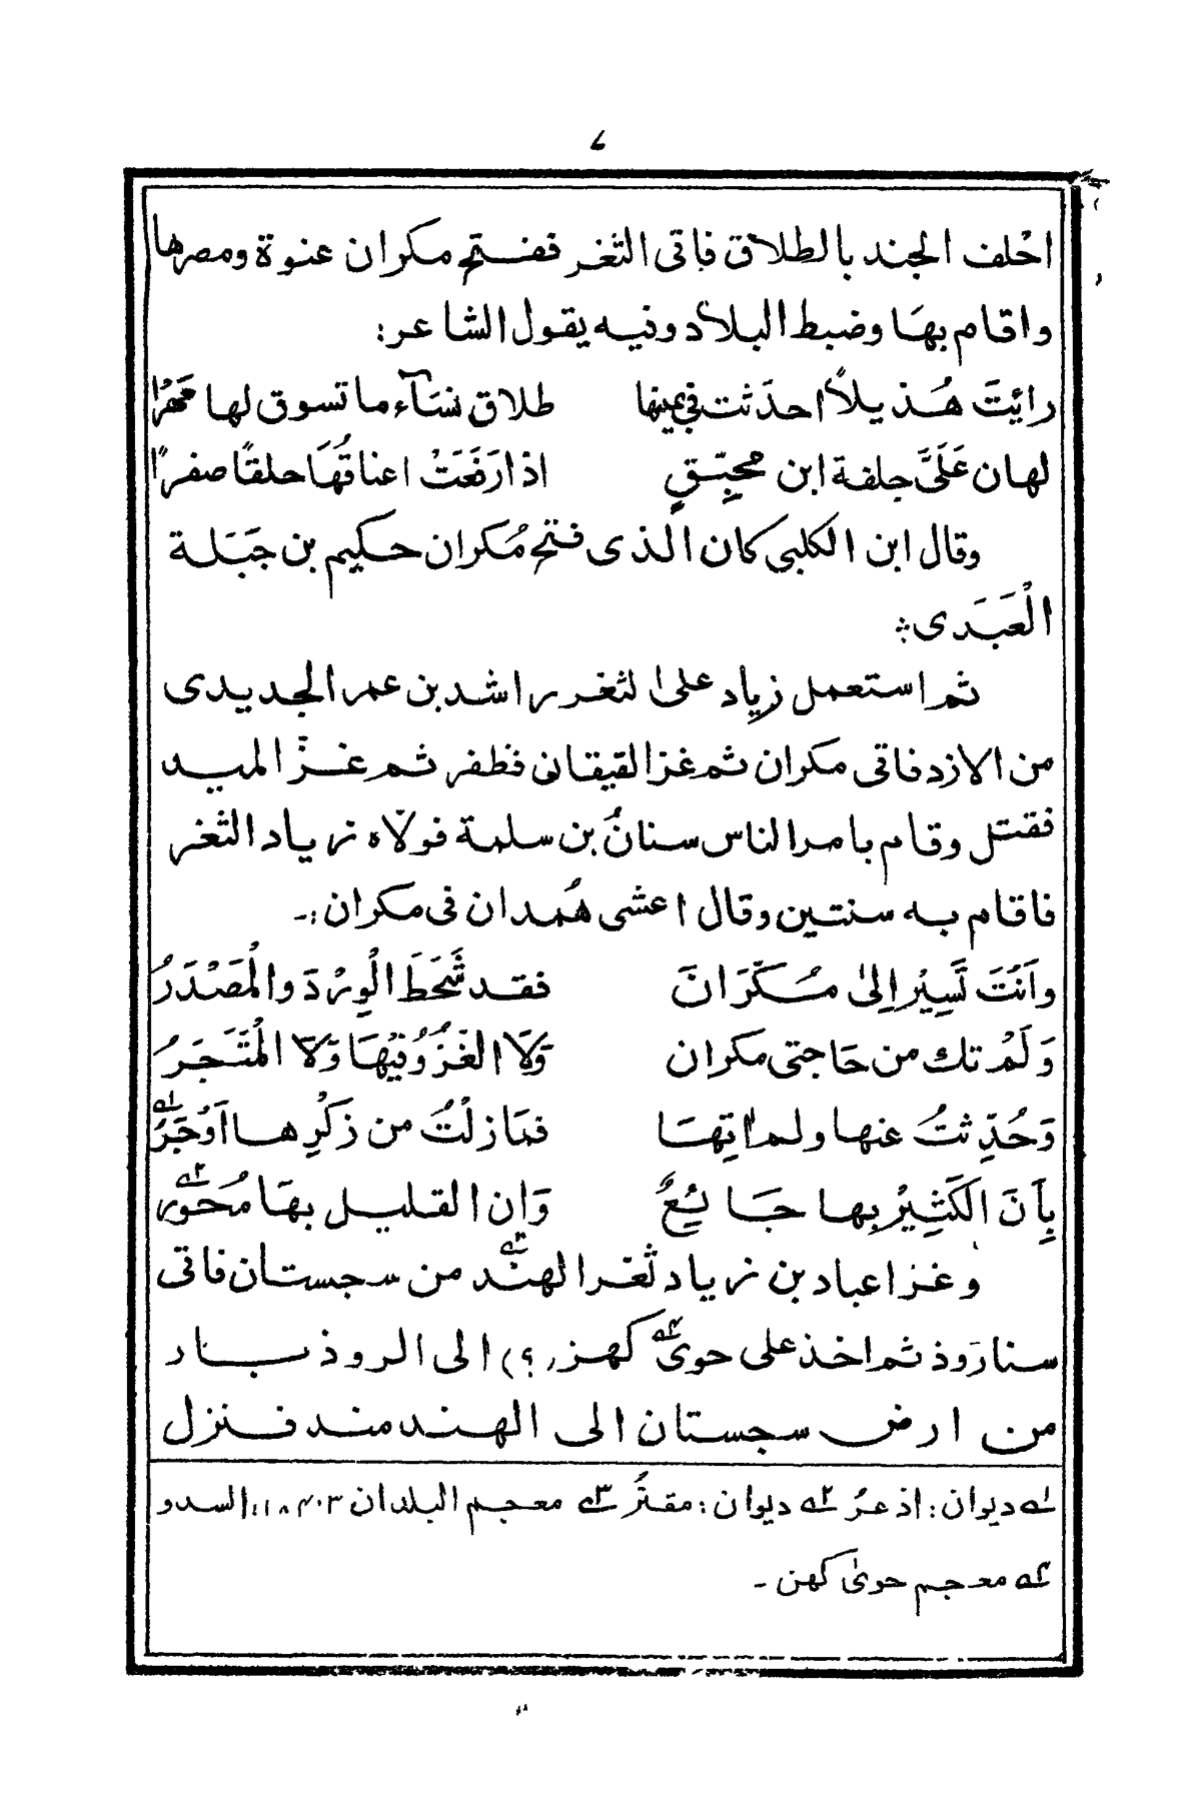 ۷
احْلف الجند بالطلاق فاتى الثغر ففتح مكران عنوة ومصرها
واقام بهَا وضبط البلاد وفيه يقول الشاعر:
رايْتَ هُذيلاً احدَثت فى يمينها طلاق نسَآء ما تسوق لها مَهْرًا
لهان عَلَىَّ حلفة ابن محبِّقٍ اذا رَفَعَتْ اعناقُهَا حلقًا صفرًا
وقال ابن الكلبى كان الذى فتح مُكران حكيم بن جَبَلة
الْعَبَدى
ثم استعمل زياد على الثغر راشد بن عمر الجديدى
من الازد فاتى مكران ثم غزا القيقانى فظفر ثم غزّ الميد
فقتل وقام بامر الناس سنانُ بن سلمة فولّاه زياد الثغر
فاقام به سنتين وقال اعشى هُمدان فى مكران:-
واَنْتَ تَسِيْر اِلىٰ مُكّرَانَ فقد شَحَطَ الْوِرْدَ والْمَصْدَرُ
وَلَمْ تك من حَاجتى مكران وَلَا الغَزْوُ فِيْهَا وَلَا الْمَتَجَرُ
وَحُدِّثتُ عنها ولم اٰتِهَا فمَا زلْتُ من ذَكْرِها اَوْجَرُ ١ـه
بِاَنَ الكَثِيْر بها جَائِعٌ وَاِن القليل بهَا مُحَوَّر ٢ـه
وغزا عباد بن زياد ثغر الهنْد ٣ـه من سجستان فاتى
سنارَوذ ثم اخذ على حوىٰ ٤ـه كهز (؟) الى الروذبار
من ارض سجستان الى الهند مند فنزل
١ـه ديوان: اذعرُ ٢ـه ديوان: مقترُ ٣ـه معجم البلدان ١٨٠٤٠٣؛ السدو
٤ـه معجم حوىٰ كهن -